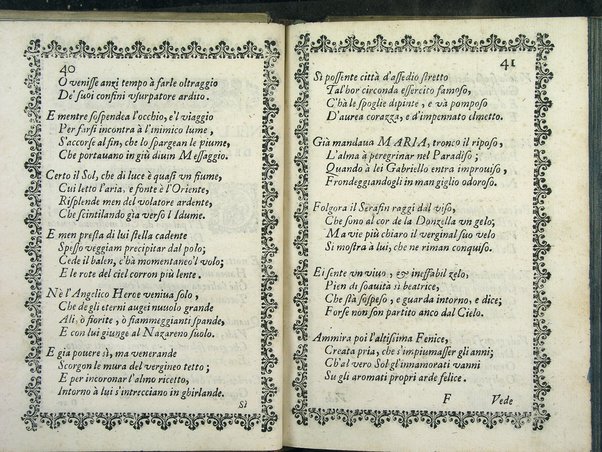 40
O venisse anzi tempo à farle oltraggio
De' suoi confini vsurpatore ardito.
E mentre sospendea l'occhio, e'l viaggio
Per farsi incontra à l'inimico lume,
S'accorse al fin, che lo spargean le piume,
Che portauano in giù diuin Messaggio.
Certo il Sol, che di luce è quasi vn fiume,
Cui letto l'aria, e fonte è l'Oriente,
Risplende men del volatore ardente,
Che scintilando gìa verso l'Idume.
E men presta di lui stella cadente
Spesso veggiam precipitar dal polo;
Cede il balen, c'hà momentaneo'l volo;
E le rote del ciel corron più lente.
Nè l'Angelico Heroe veniua solo,
Che de gli eterni augei nuuolo grande
Ali, ò fiorite, ò fiammeggianti spande,
E con lui giunge al Nazareno suolo.
E già pouere sì, ma venerande
Scorgon le mura del vergineo tetto;
E per incoronar l'almo ricetto,
Intorno à lui s'intrecciano in ghirlande.
Sì
41
Sì possente città d'assedio stretto
Talhor circonda essercito famoso,
C'hà le spoglie dipinte, e và pomposo
D'aurea corazza, e d'impennato elmetto.
Già mandaua MARIA, tronco il riposo,
L'alma à peregrinar nel Paradiso,
Quando à lei Gabriello entra improuiso,
Frondeggiandogli in man giglio odoroso.
Folgora il Serafin raggi dal viso,
Che sono al cor de la Donzella vn gelo;
Ma vie più chiaro il verginal suo velo
Si mostra à lui, che ne riman conquiso.
Ei sente vn viuo, & ineffabil zelo,
Pien di soauità sì beatrice,
Che stà sospeso, e guarda intorno, e dice;
Forse non son partito anco dal Cielo.
Ammira poi l'altissima Fenice,
Creata pria, che s'impiumasser gli anni;
Ch'al vero Sol gl'innamorati vanni
Su gli aromati propri arde felice.
F Vede